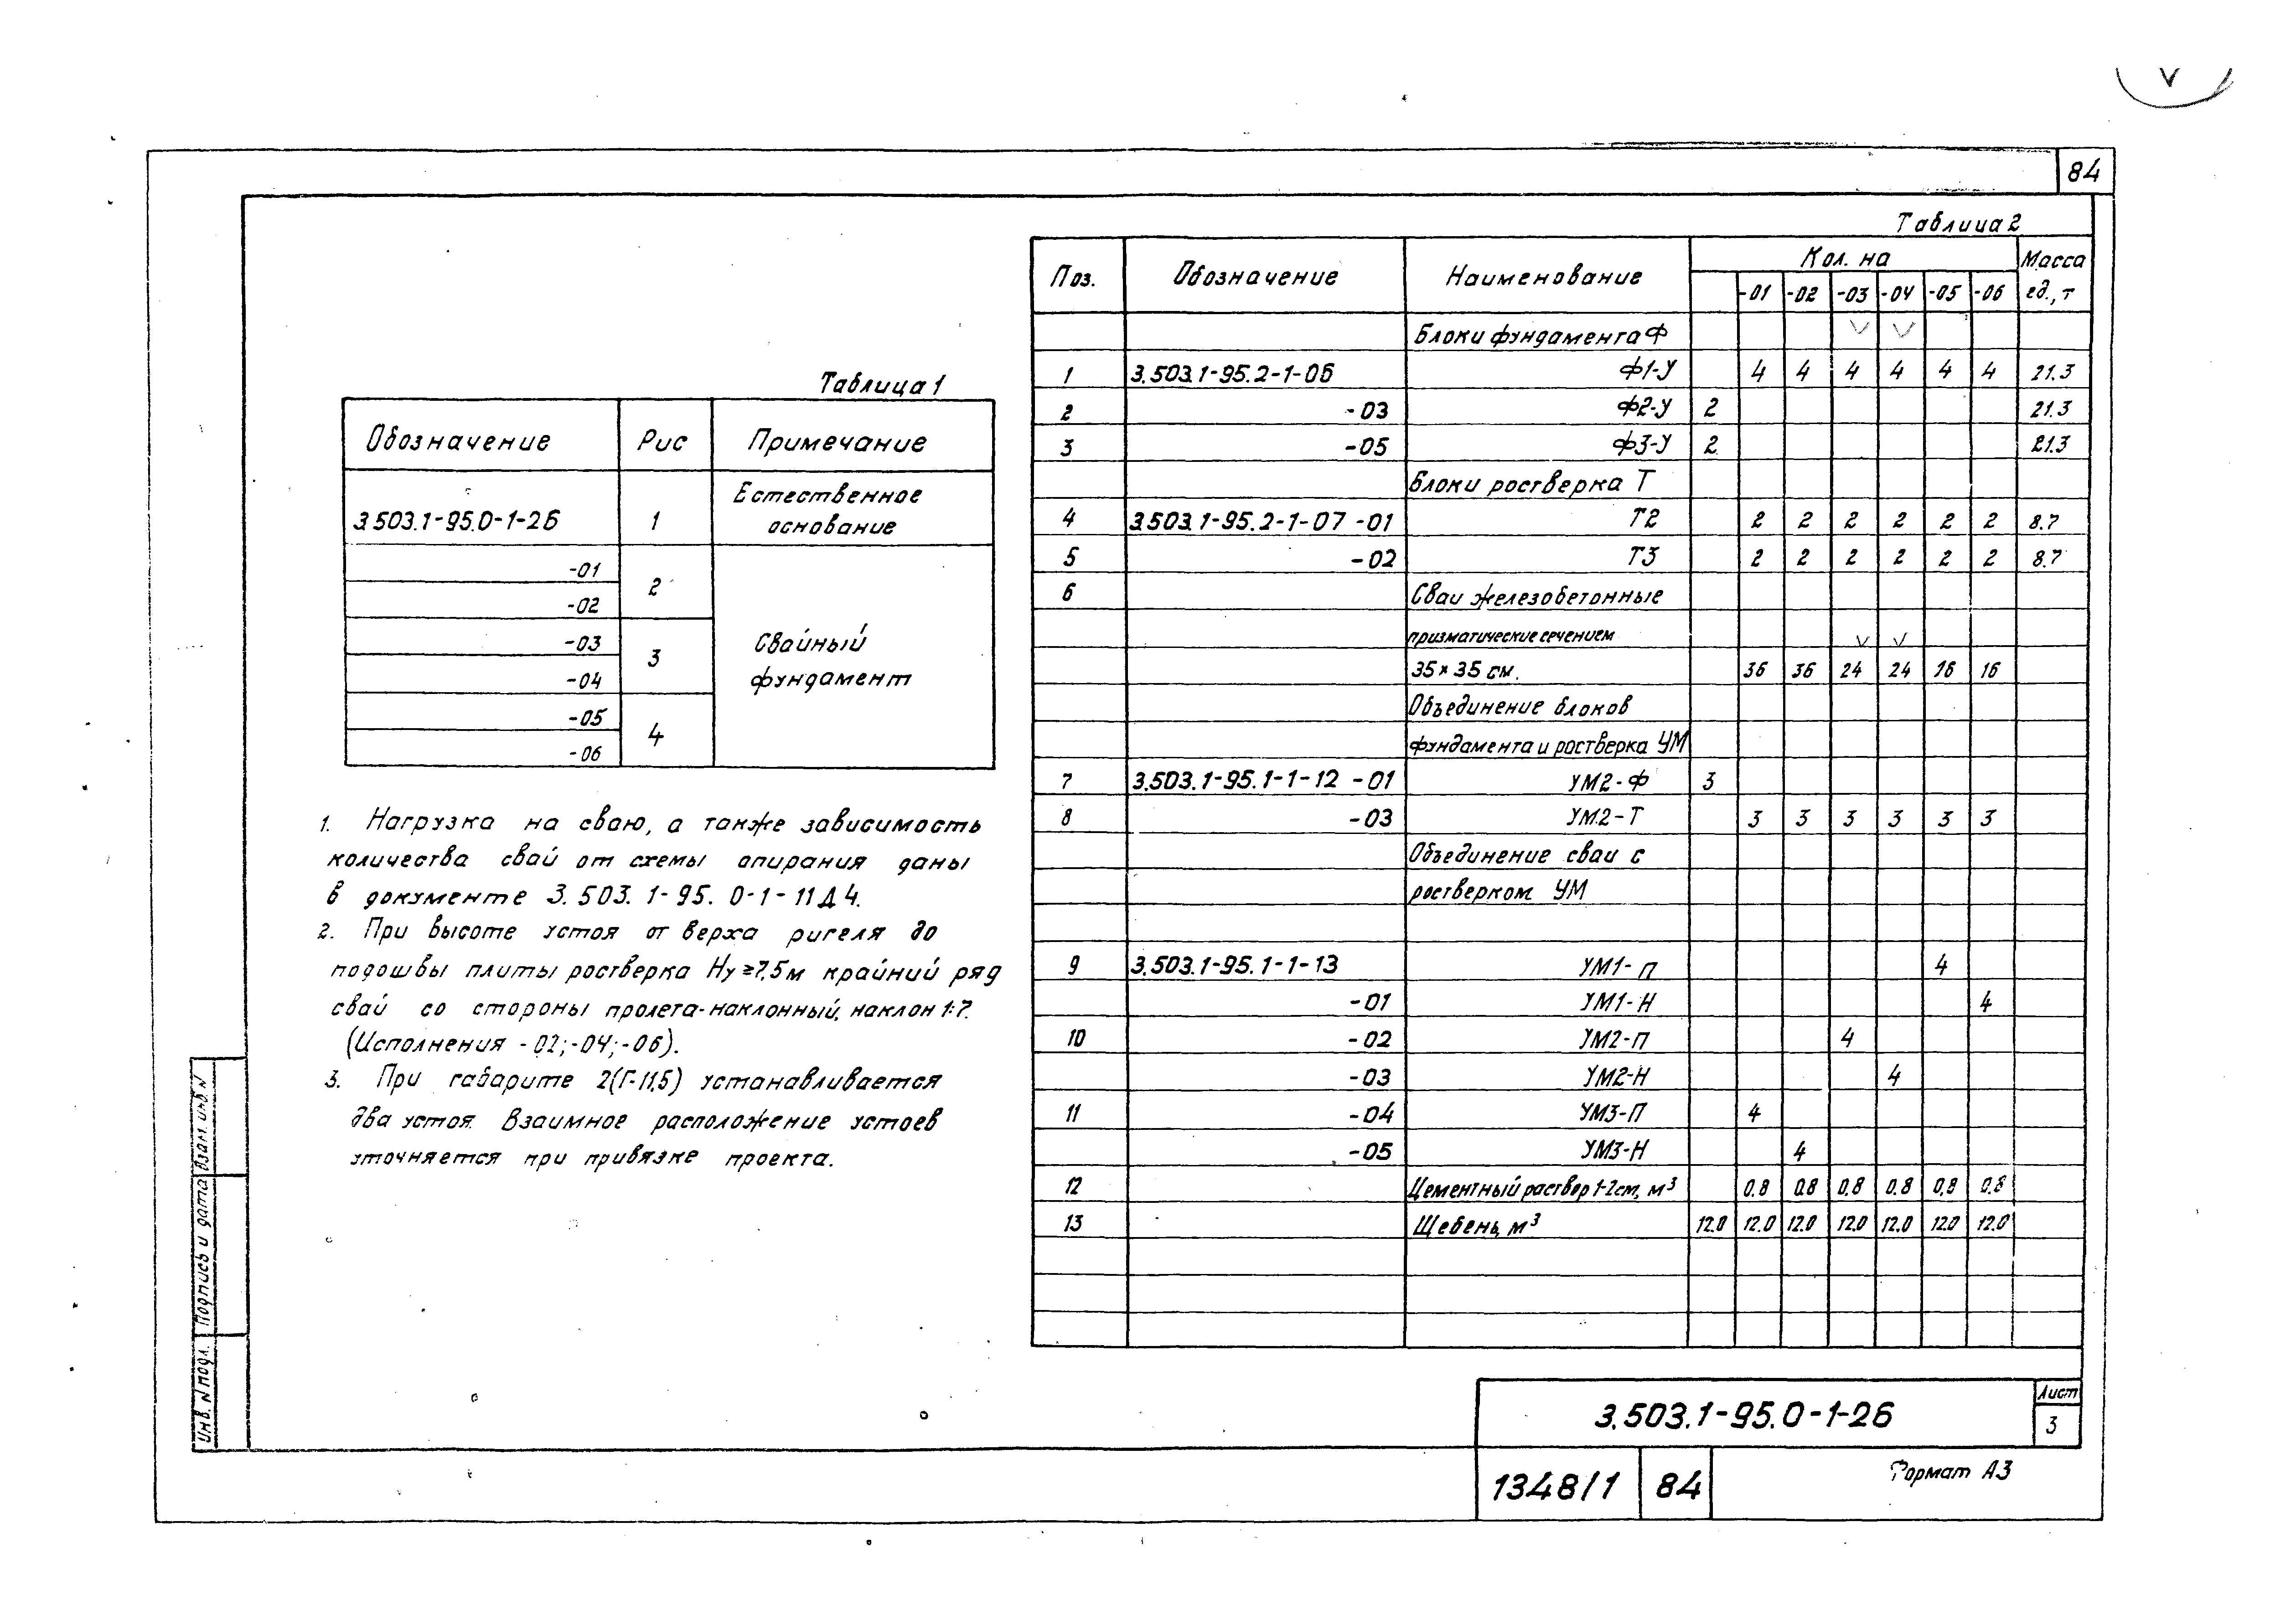 84
Таблица 1
Обозначение Рис Примечание
3.503.1-95.0-1-26 1 Естественное
основание
-01
2
-02
-03 Свайный
3
-04 фундамент
-05
4
-06
1. Нагрузка на сваю, а также зависимость
количества свай от схемы опирания даны
в документе 3.503.1-95.0-1-11Д4.
2. При высоте устоя от верха ригеля до
подошвы плиты ростверка Ну≥7,5м крайний ряд
свай со стороны пролета-наклонный, наклон 1:7.
(Исполнения -02;-04;-06).
3. При габарите 2(Г-11,5) устанавливается
два устоя. Взаимное расположение устоев
уточняется при привязке проекта.
Таблица 2
Поз. Обозначение Наименование Кол. на Масса
-01 -02 -03 -04 -05 -06 ед., т
Блоки фундамента Ф
1 3.503.1-95.2-1-06 Ф1-У 4 4 4 4 4 4 21.3
2 -03 Ф2-У 2 21.3
3 -05 Ф3-У 2 21.3
Блоки ростверка Т
4 3.503.1-95.2-1-07 -01 Т2 2 2 2 2 2 2 8.7
5 -02 Т3 2 2 2 2 2 2 8.7
6 Сваи железобетонные
призматические сечением
35×35 см. 36 36 24 24 16 16
Объединение блоков
фундамента и ростверка УМ
7 3.503.1-95.1-1-12 -01 УМ2-Ф 3
8 -03 УМ2-Т 3 3 3 3 3 3
Объединение сваи с
ростверком УМ
9 3.503.1-95.1-1-13 УМ1-П 4
-01 УМ1-Н 4
10 -02 УМ2-П 4
-03 УМ2-Н 4
11 -04 УМ3-П 4
-05 УМ3-Н 4
12 Цементный раствор 1-2см, м³ 0.8 0.8 0.8 0.8 0.8 0.8
13 Щебень, м³ 12.0 12.0 12.0 12.0 12.0 12.0 12.0
Инв. N подл. Подпись и дата Взам. инв. N
3.503.1-95.0-1-26 Лист
3
1348/1 84 Формат А3